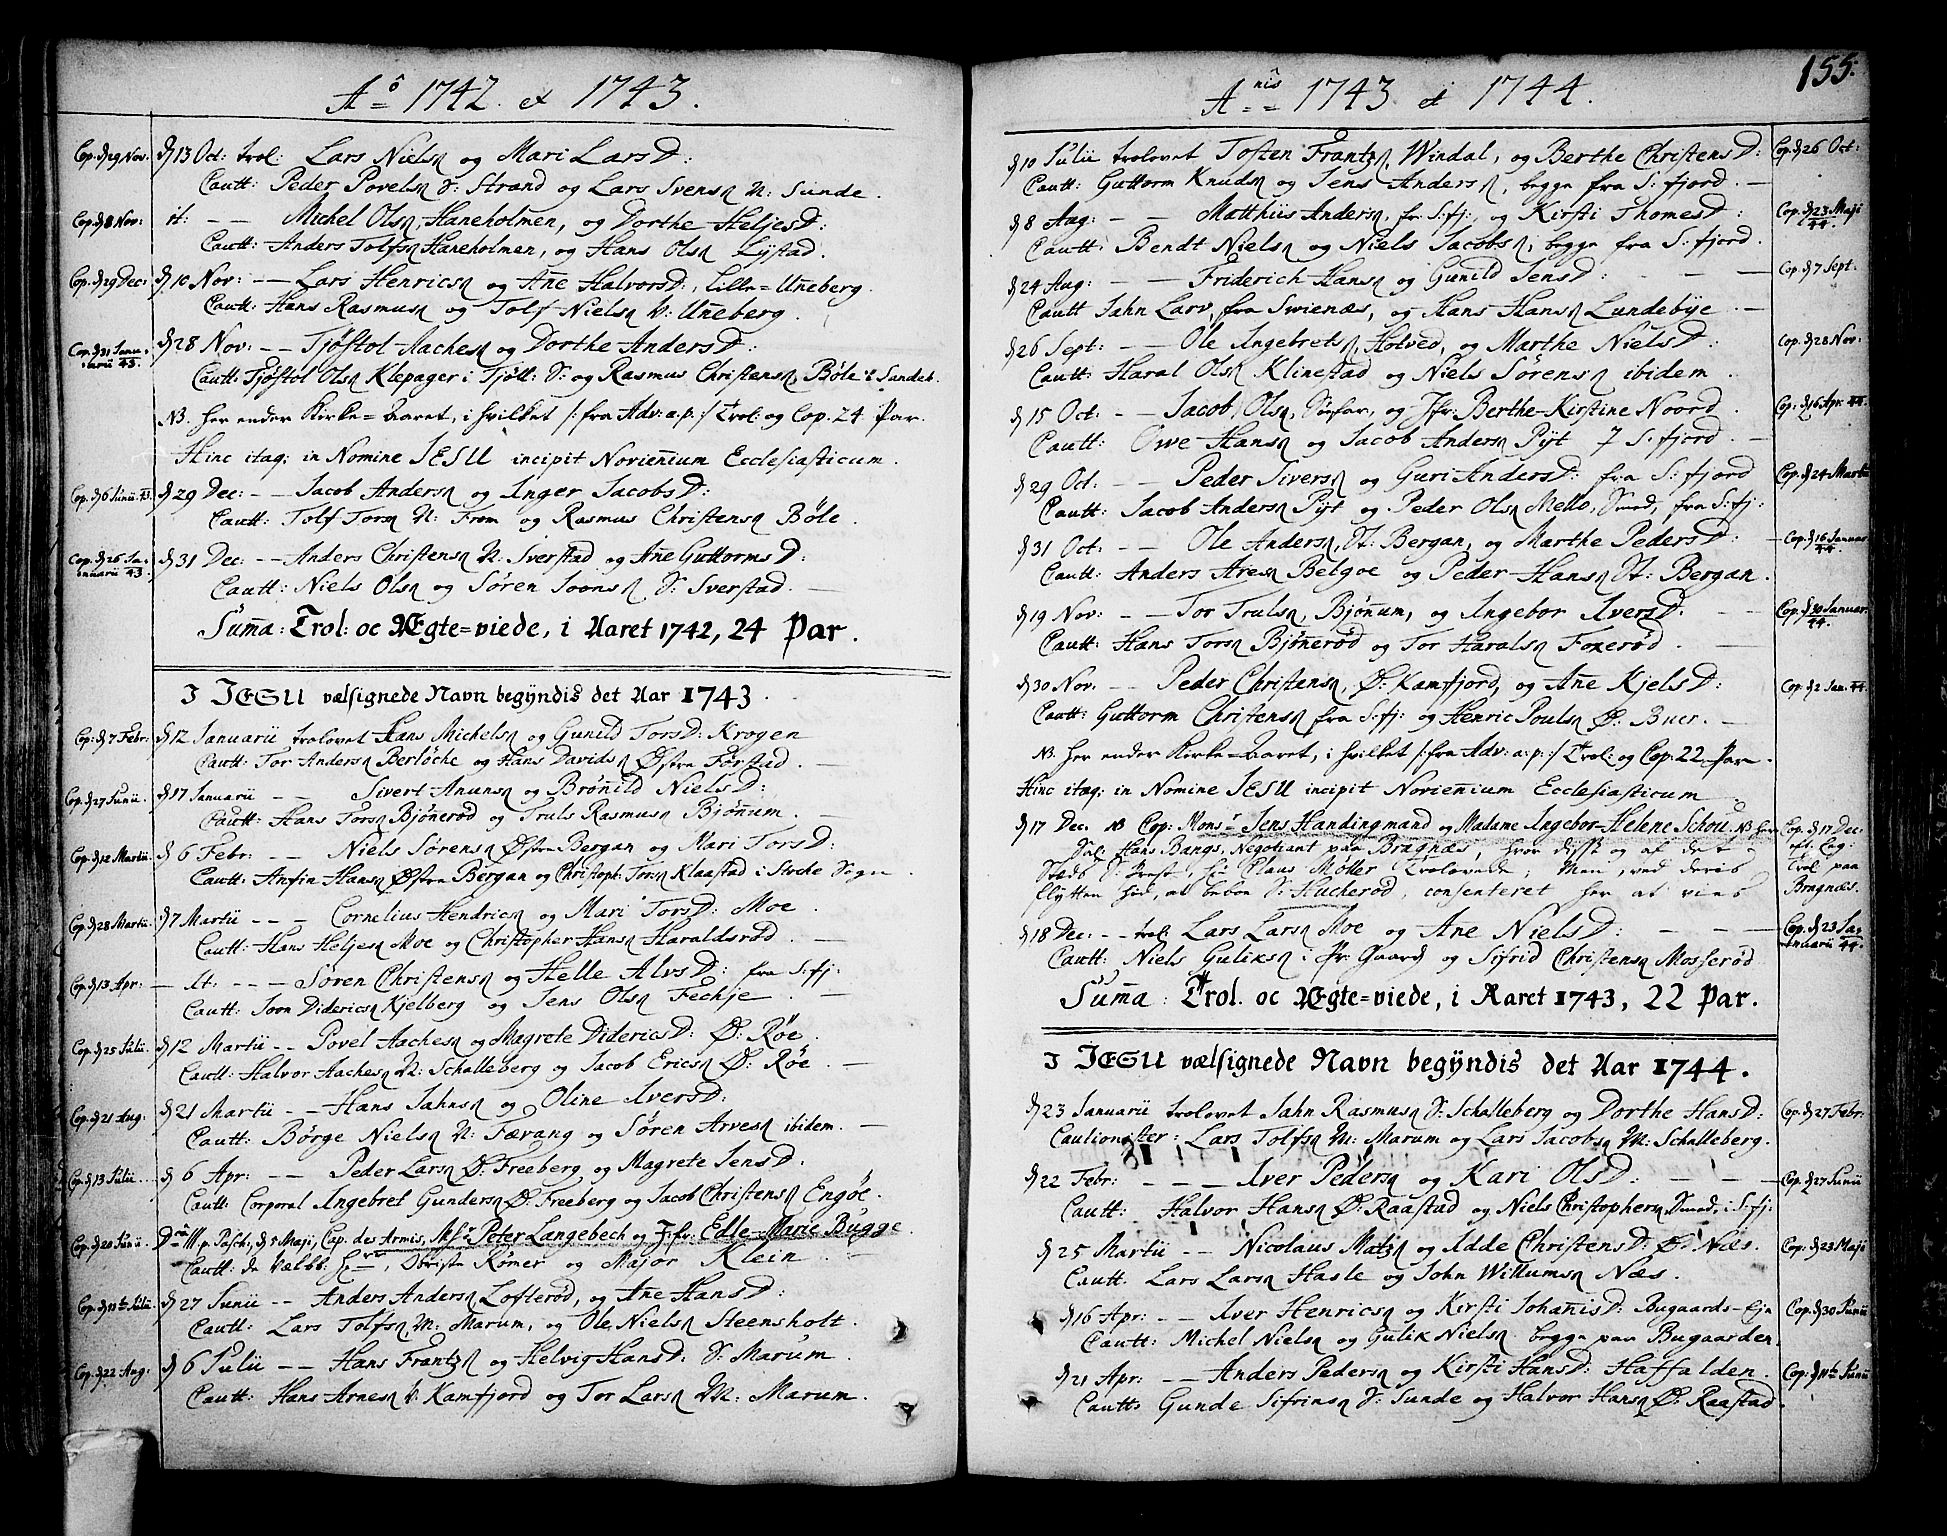 Aô 1742 et 1743.
Cop. d 29 Nov. d 13 Oct: trol: Lars Nielsn og Mari LarsD:
Cautt: Peder Povelsn S: Strand og Lars Svensn N: Sunde.
Cop. d 8 Nov: it: -- Michel Olsn, Haneholmen, og Dorthe HeljesD:
Cautt: Anders Tolfsn Haneholmen, og Hans Olsn Lystad.
Cop. d 29 Dec: d 10 Nov: -- Lars Henricsn og Añe HalvorsD:, Lille=Uñeberg.
Cautt: Hans Rasmusn og Tolf Nielsn V: Uñeberg.
Cop. d 31 Janu- d 28 Nov: -- Tjøstol Aachesn og Dorthe AndersD:
arii 43. Cautt: Tjøstol Olsn Klepager i Tjøll: S: og Rasmus Christensn, Bøle i Sandeh.
NB. her ender Kirke=Aaret, i hvilket /: fra Adv: a: p: / Trol: og Cop. 24 Par.
Hinc itaq; in Nomine JESU incipit Novieñium Ecclesiasticum.
Cop. d 6 Junii 43. d 29 Dec: -- Jacob Andersn og Inger JacobsD:
Cautt: Tolf Torsn N: Fron og Rasmus Christensn Bøle.
Cop. d 26 Ja- d 31 Dec: -- Anders Christensn N. Sverstad og Añe GuttormsD:
nuarii 43 Cautt: Niels Olsn og Søren Joonsn S: Sverstad.
Suma: Trol: oc Ægte=viede, i Aaret 1742, 24 Par.
I JESU vælsignede Navn begÿndis det Aar 1743.
Cop: d 7 Febr: d 12 Januarii trolovet Hans Michelsn og Gunild TorsD: Krogen
Cautt: Tor Andersn Berløche og Hans Davidsn Østre Førstad.
Cop. d 27 Junii. d 17 Januarii -- Sivert Anunsn og Brøñild NielsD:
Cautt: Hans Torsn Bjøñerød og Truls Rasmusn Bjøñum.
Cop. d 12 Martii. d 6 Febr: -- Niels Sørensn Østre Bergan og Mari TorsD:
Cautt: Anfin Hansn Østre Bergan og Christoph: Torsn Klaastad i Stoche Sogn
Cop. d 28 Martii. d 7 Martii -- Cornelius Hendricsn og Mari TorsD: Moe.
Cautt: Hans Heljesn Moe og Christopher Hansn Haraldsrød.
Cop. d 13 Apr: It: --- Søren Christensn og Helle AlvsD: fra S:fj:
Cautt: Joon Didericsn Kjelberg og Jens Olsn Fechje.
Cop. d 25 Julii. d 12 Martii -- Povel Aachesn og Magrete DidericsD: Ø: Røe.
Cautt: Halvor Aachesn N: Schalleberg og Jacob Ericsn Ø: Røe.
Cop. d 21 Aug: d 21 Martii -- Hans Jahnsn og Oline IversD:
Cautt: Børge Nielsn N: Færvang og Søren Arvesn ibidem.
Cop. d 13 Julii. d 6 Apr: -- Peder Larsn Ø: Freeberg og Magrete JensD.
Cautt: Corporal Ingebret Gundersn Ø: Freeberg og Jacob Christensn Engøe.
Cop. d 20 Junii. Dca III p. Pasch: d 5 Maji, Cap. des Armis, Msr Peter Langebech og Jfr: Edle-Marie Bugge.
Cautt: de Vælbb: Hrr, Obriste Rømer og Major Klein
Cop. d 11te Julii. d 27 Junii -- Anders Andersn Lofterød, og Añe HansD:
Cautt: Lars Tolfsn M: Marum, og Ole Nielsn Steensholt.
Cop. d 22 Aug: d 6 Julii -- Hans Frantzn og Helvig HansD: S: Marum.
Cautt: Hans Arnesn V: Kamfjord og Tor Larsn M: Marum.
Anis 1743 et 1744.
155:
d 10 Julii trolovet Tosten Frantzn, Windal, og Berthe ChristensD: Cop. d 26 Oct:
Cautt: Guttorm Knudsn og Jens Andersn, begge fra S:fjord.
d 8 Aug: -- Matthiis Andersn, fr: S:fj:, og Kirsti ThomesD: Cop. d 23 Maji 44.
Cautt: Bendt Nielsn og Niels Jacobsn, begge fra S:fjord.
d 24 Aug: -- Friderich Hansn og Gunild JensD: Cop. d 7 Sept:
Cautt Jahn Larv, fra Svienæs, og Hans Hansn Lundebÿe.
d 26 Sept: -- Ole Ingebretsn, Holved, og Marthe NielsD: Cop. d 28 Nov:
Cautt: Haral Olsn Klinestad og Niels Sørensn ibidem.
d 15 Oct: -- Jacob Olsn, og Jfr: Berthe-Kirstine Noord. Cop: d 16 Apr: 44.
Cautt: Owe Hansn og Jacob Andersn Pÿt 7 S:fjord.
d 29 Oct: -- Peder Siversn og Guri AndersD: fra S:fjord Cop: d 24 Martii
Cautt: Jacob Andersn Pÿt og Peder Olsn Mello, Smed, fra S:fj:
d 31 Oct: -- Ole Andersn, St: Bergan, og Marthe PedersD: Cop. d 16 Januar: 44.
Cautt: Anders Aresn Belgoe og Peder Hansn St: Bergan.
d 19 Nov: -- Tor Trulsn, Bjøñum, og Ingebor IversD: Cop. d 30 Januar: 44.
Cautt: Hans Torsn Bjøñerød og Tor Haralsn Foxerød.
d 30 Nov: -- Peder Christensn, Ø: Kamfjord, og Añe KjelsD: Cop. d 2 Jan: 44.
Cautt: Guttorm Christensn fra S:fj: og Henric Poulsn Ø: Buer.
NB. her ender Kirke=Aaret, i hvilket /: fra Adv: a: p: / Trol: og Cop: 22 Par.
Hinc itaq; in Nomine JESU incipit Novieñium Ecclesiasticum
d 17 Dec. NB Cop: Monsr Jens Handingmand og Madame Ingebor-Helene Schou. NB her Cop. d 17 Dec
Sal: Hans Bangs, Negotiant paa Bragnæs, hvor disse og af det
Steds S: Prest, Hr: Claus Møller trolovede; Men, ved deris Trol paa
flytten hid, at beboe S: Hucherød, consenteret her at vies Bragnæs.
d 18 Dec: -- trol: Lars Larsn Moe og Ane NielsD: Cop. d 23 Januarii 44.
Cautt: Niels Guliksn i Pr: Gaard og Sifrid Christensn Mosserød
Suma: Trol. oc Ægte=viede, i Aaret 1743, 22 Par.
I JESU vælsignede Navn begÿndis det Aar 1744.
d 23 Januarii trolovet Jahn Rasmusn S: Schalleberg og Dorthe HansD: Cop: d 27 Febr:
Cautionister: Lars Tolfsn M: Marum og Lars Jacobsn M: Schalleberg.
d 22 Febr: --- Iver Pedersn og Kari OlsD: Cop. d 27 Junii
Cautt: Halvor Hansn Ø: Raastad og Niels Christophersn, Smed, i S:fj:
d 25 Martii -- Nicolaus Matzn og Idde ChristensD: Ø: Næs. Cop: d 23 Maji
Cautt. Lars Larsn Hasle og John Willumsn Næs.
d 16 Apr: -- Iver Henricsn og Kirsti JohañisD: Bugaards-Ejn Cop. d 30 Junii
Cautt: Michel Nielsn og Gulik Nielsn begge paa Bugaarden.
d 21 Apr: -- Anders Pedersn og Kirsti HansD: Haffalden. Cop: d 11te Junii
Cautt: Gunde Sifrinsn S: Sunde og Halvor Hansn Ø: Raastad.